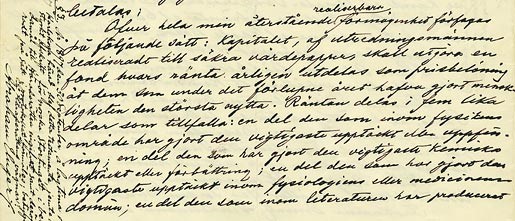 utbetalas;
realiserbara
Öfver hela min återstående förmögenhet förfogas
på följande sätt: Kapitalet, af utredningsmännen
realiseradt till säkra värdepapper, skall utgöra en
fond hvars ränta årligen utdelas som prisbelöning
åt dem som under det förlupne året hafva gjort mensk-
ligheten den största nytta. Räntan delas i fem lika
delar som tillfalla: en del den som inom fysikens
område har gjort den vigtigaste upptäckt eller uppfin-
ning; en del den som har gjort den vigtigaste kemiska
upptäckt eller förbättring; en del den som har gjort den
vigtigaste upptäckt inom fysiologiens eller medicinens
domän; en del den som inom literaturen har producerat